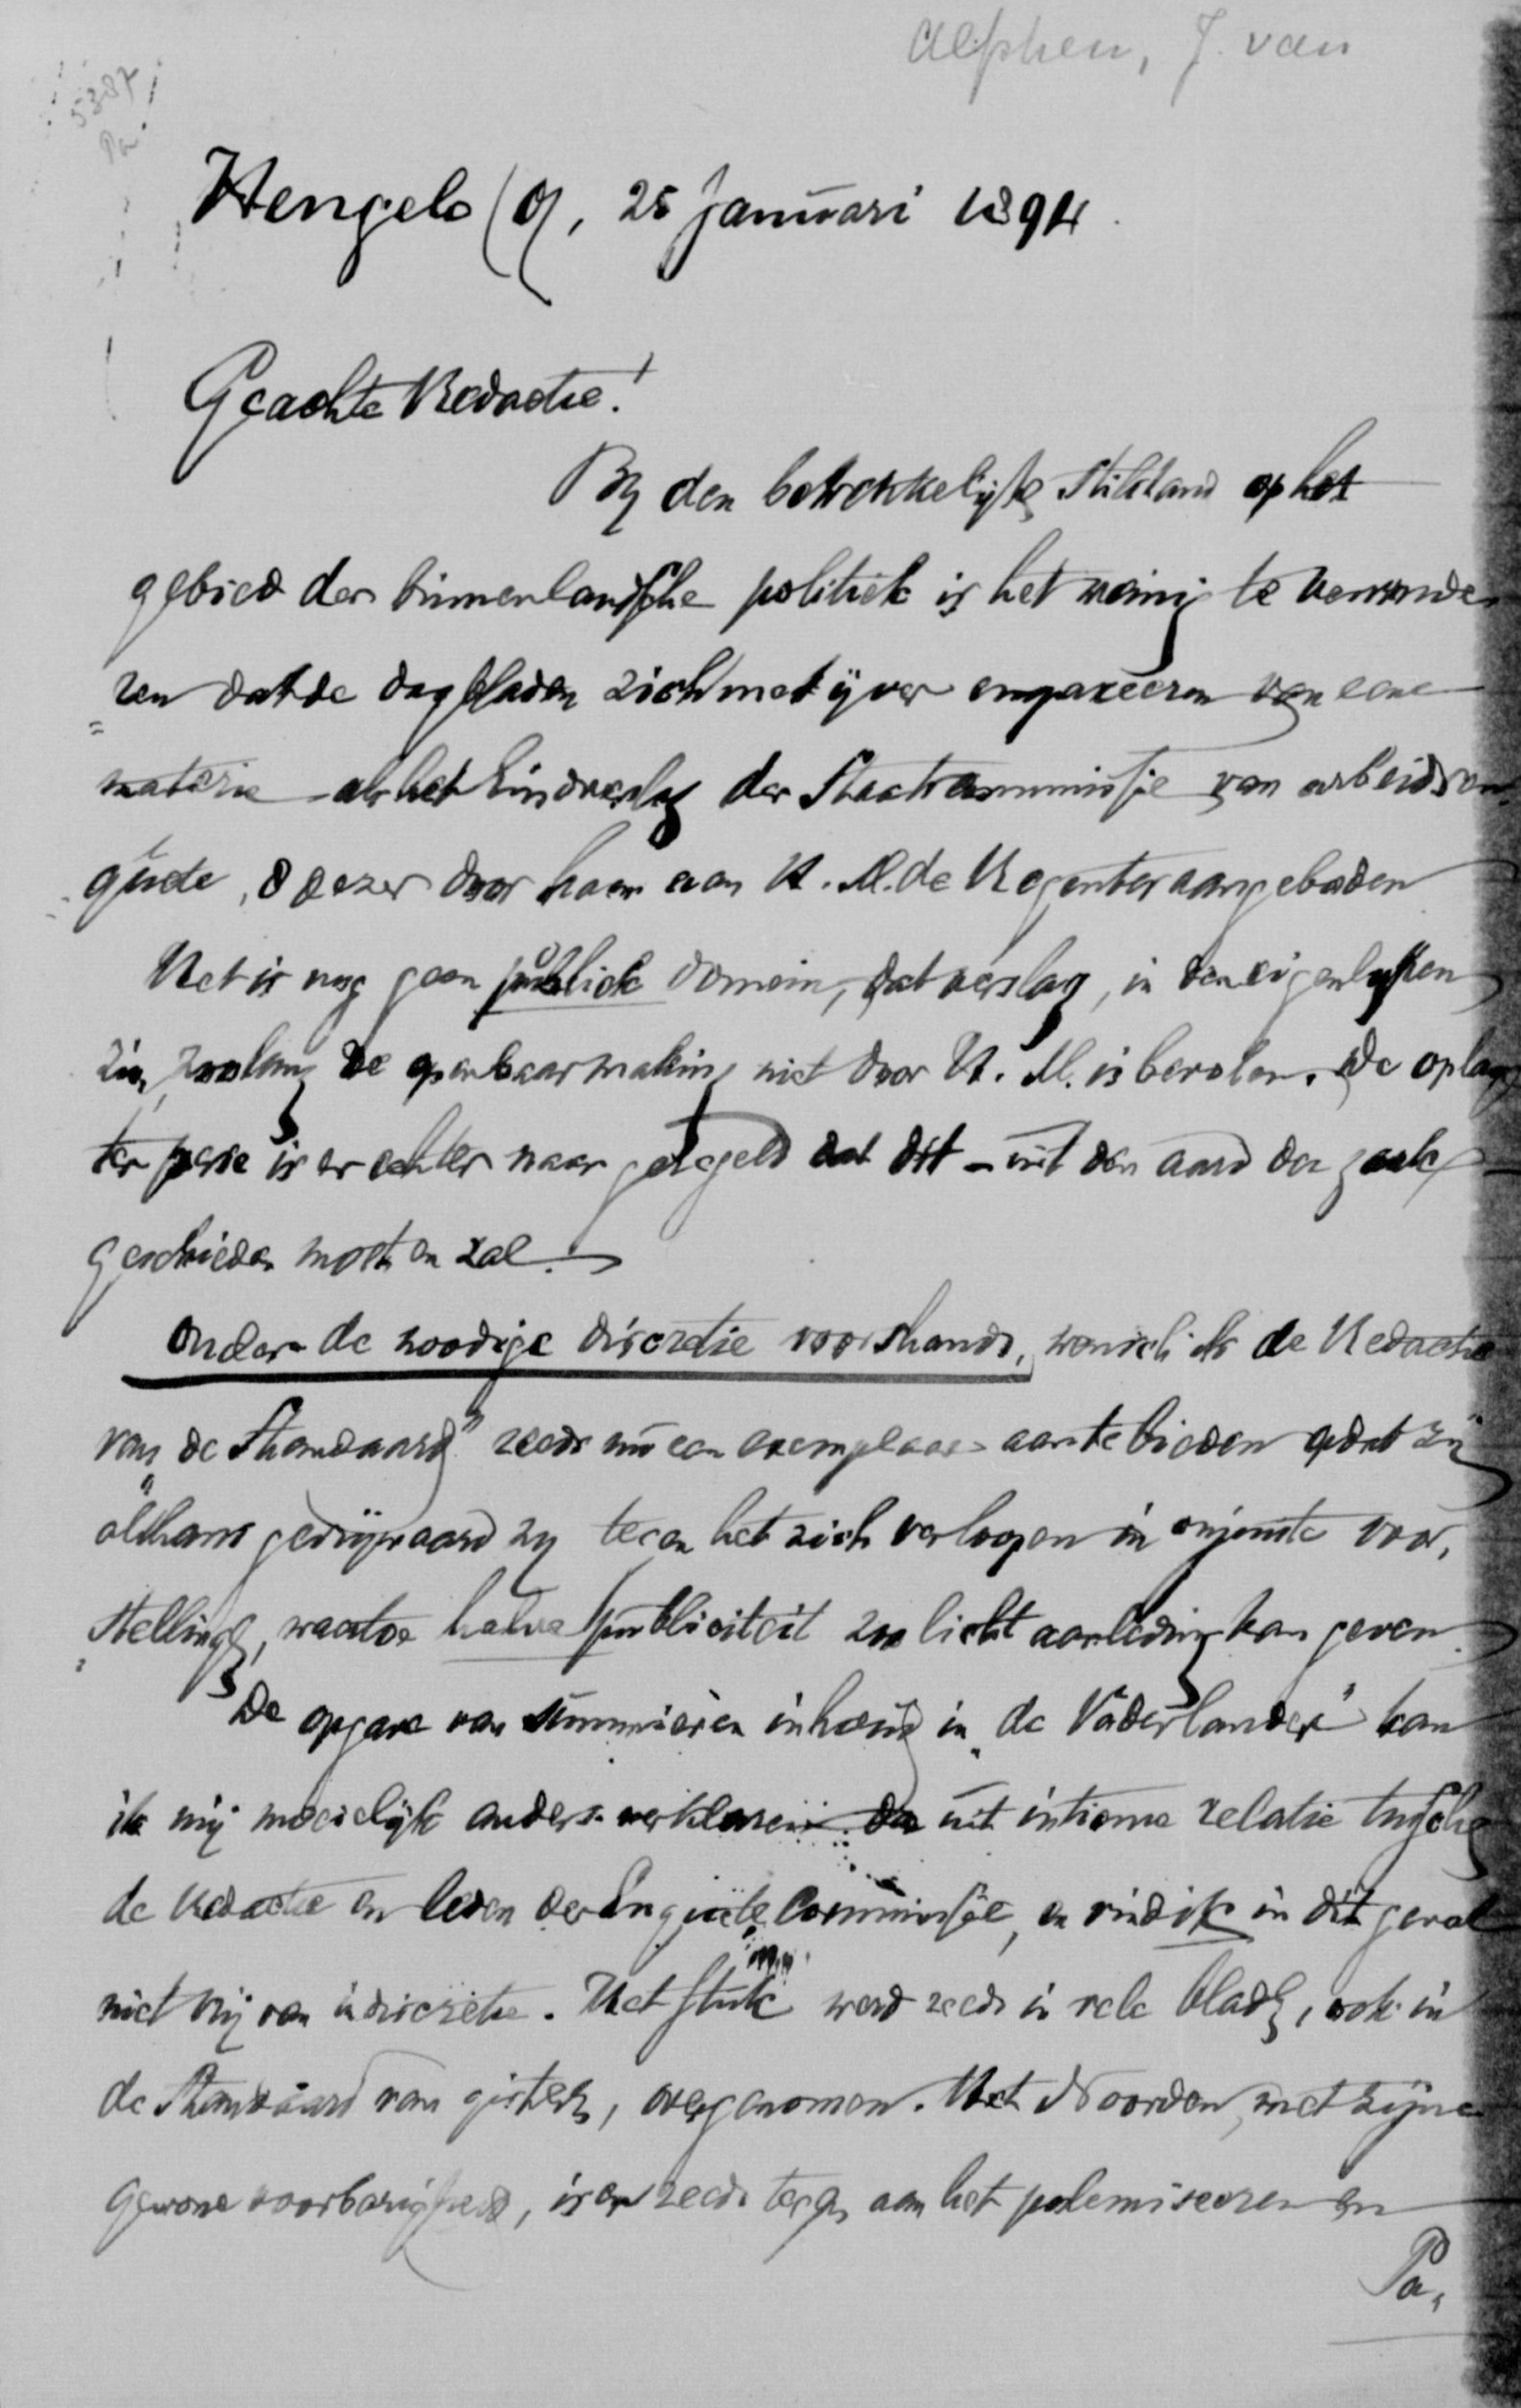 Alphen, J. van
5387
Pa
Hengelo (O), 25 Januari 1894.
Geachte Redactie!
By den betrekkelijke stilstand op het
gebied der binnenlandsche politiek is het weinig te verwonde
ren dat de dagbladen zich met ijver empareeren van eene
materie als het Eindverslag der Staatscommissie van arbeidsen
quête, d dezer door haar aan H. M. de Regentes aangeboden
Het is nog geen publiek domein, dat verslag, in den eigenlyken
zin, zoolang de openbaarmaking niet door H. M. is bevolen. De oplaag
ter perse is er echter naar geregeld dat dit – uit den aard der zaak –
geschieden moet en zal.
Onder de noodige discretie voorshands, wensch ik de Redactie
van „de Standaard" reeds nu een exemplaar aan te bieden opdat zij
althans gevrijwaard zy tegen het zich verloopen in onjuiste voor,
stellingen, waartoe halve publiciteit zoo licht aanleiding kan geven.
De opgave van summieren inhoud in „de Vaderlander" kan
ik mij moeielijk anders verklaren da uit intieme relatie tusschen
de redactie en leden der Enquête Commissie, en vind ik in dit geval
niet vrij van indiscretie. Het stuk werd reeds in vele bladen, ook in
de Standaard van gisteren, overgenomen. Het Noorden, met zijne
gewone voorbarigheid, is er reeds tegen aan het polemiseeren en
Pa,